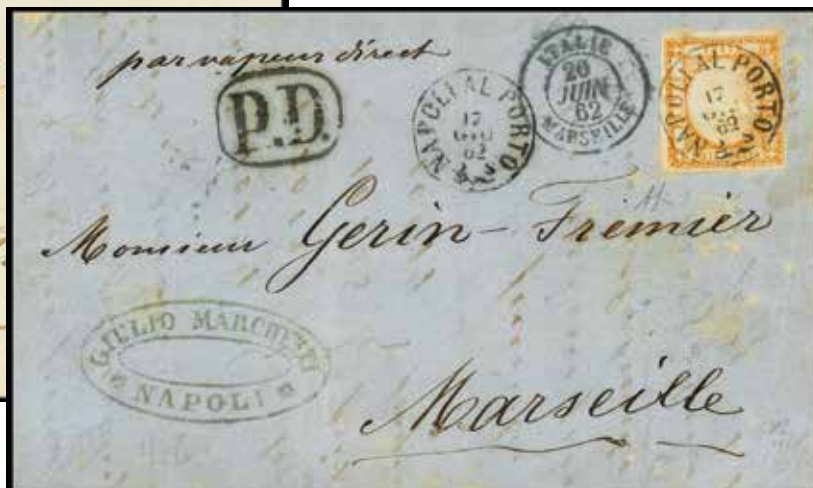 par vapeur direct
P.D.
NAPOLI AL PORTO
17
GIU
62
ITALIE
20
JUIN
62
MARSEILLE
NAPOLI AL PORTO
17
GIU
62
Monsieur Gerin-Fremier
GIULIO MARCHETTI
NAPOLI
Marseille